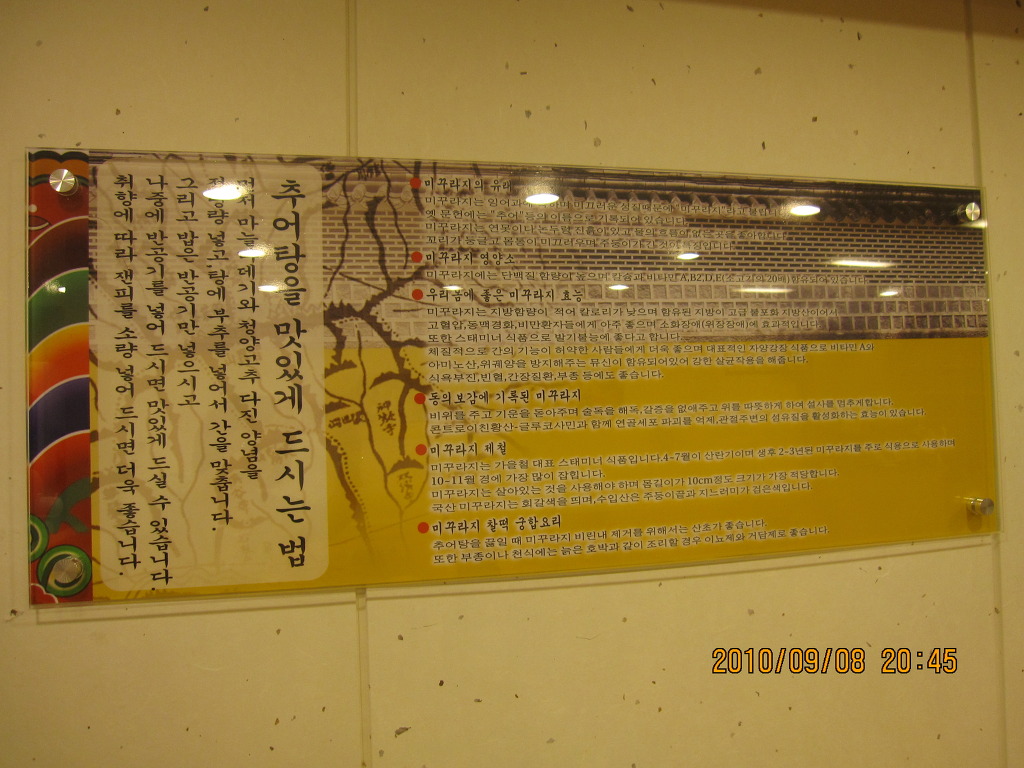 추어탕을 맛있게 드시는 법
먼저 마늘 데기와 청양고추 다진 양념을
적량 넣고 탕에 부추를 넣어서 간을 맞춥니다.
그리고 밥은 반공기만 넣으시고
나중에 반공기를 넣어 드시면 맛있게 드실 수 있습니다.
취향에 따라 잰피를 소량 넣어 드시면 더욱 좋습니다.
미꾸라지의 유래
미꾸라지는 잉어과에 미끄러운 성질때문에 "미꾸라지"라고
옛 문헌에는 "추어" 등의 이름으로 기록되어 있습니다.
미꾸라지는 연못이나 논두렁
꼬리가 둥글고 몸통이 미끄러우며 주둥이가 긴 것이 특징입니다.
미꾸라지 영양소
미꾸라지에는 단백질 함량이 높으며 칼슘과 비타민 A,B2,D,E 함유되어 있습니다.
우리몸에 좋은 미꾸라지 효능
미꾸라지는 지방함량이 적어 칼로리가 낮으며 함유된 지방이 고급 불포화 지방산이어서
고혈압,동맥경화,비만환자들에게 아주 좋으며 소화장애(위장장애)에 효과적입니다.
또한 스태미너 식품으로 발기불능에 좋다고 합니다.
체질적으로 간의 기능이 허약한 사람들에게 더욱 좋으며 대표적인 자양강장 식품으로 비타민 A와
아미노산,위궤양을 방지해주는 뮤신이 함유되어있어 강한 살균작용을 해줍니다.
식욕부진,빈혈,간장질환,부종 등에도 좋습니다.
동의보감에 기록된 미꾸라지
비위를 주고 기운을 돋아주며 술독을 해독,갈증을 없애주고 위를 따뜻하게 하여 설사를 멈추게합니다.
콘드로이친황산-글루코사민과 함께 연골세포 파괴를 억제,관절주변의 섬유질을 활성화하는 효능이 있습니다.
미꾸라지 제철
미꾸라지는 가을철 대표 스태미너 식품입니다.4~7월이 산란기이며 생후 2~3년된 미꾸라지를 주로 식용으로 사용하며
10~11월 경에 가장 많이 잡힙니다.
미꾸라지는 살아있는 것을 사용해야 하며 몸길이가 10cm정도 크기가 가장 적당합니다.
국산 미꾸라지는 회갈색을 띄며,수입산은 주둥이끝과 지느러미가 검은색입니다.
미꾸라지 찰떡 궁합요리
추어탕을 끓일 때 미꾸라지 비린내 제거를 위해서는 산초가 좋습니다.
또한 부종이나 천식에는 늙은 호박과 같이 조리할 경우 이뇨제와 거담제로 좋습니다.
2010/09/08 20:45